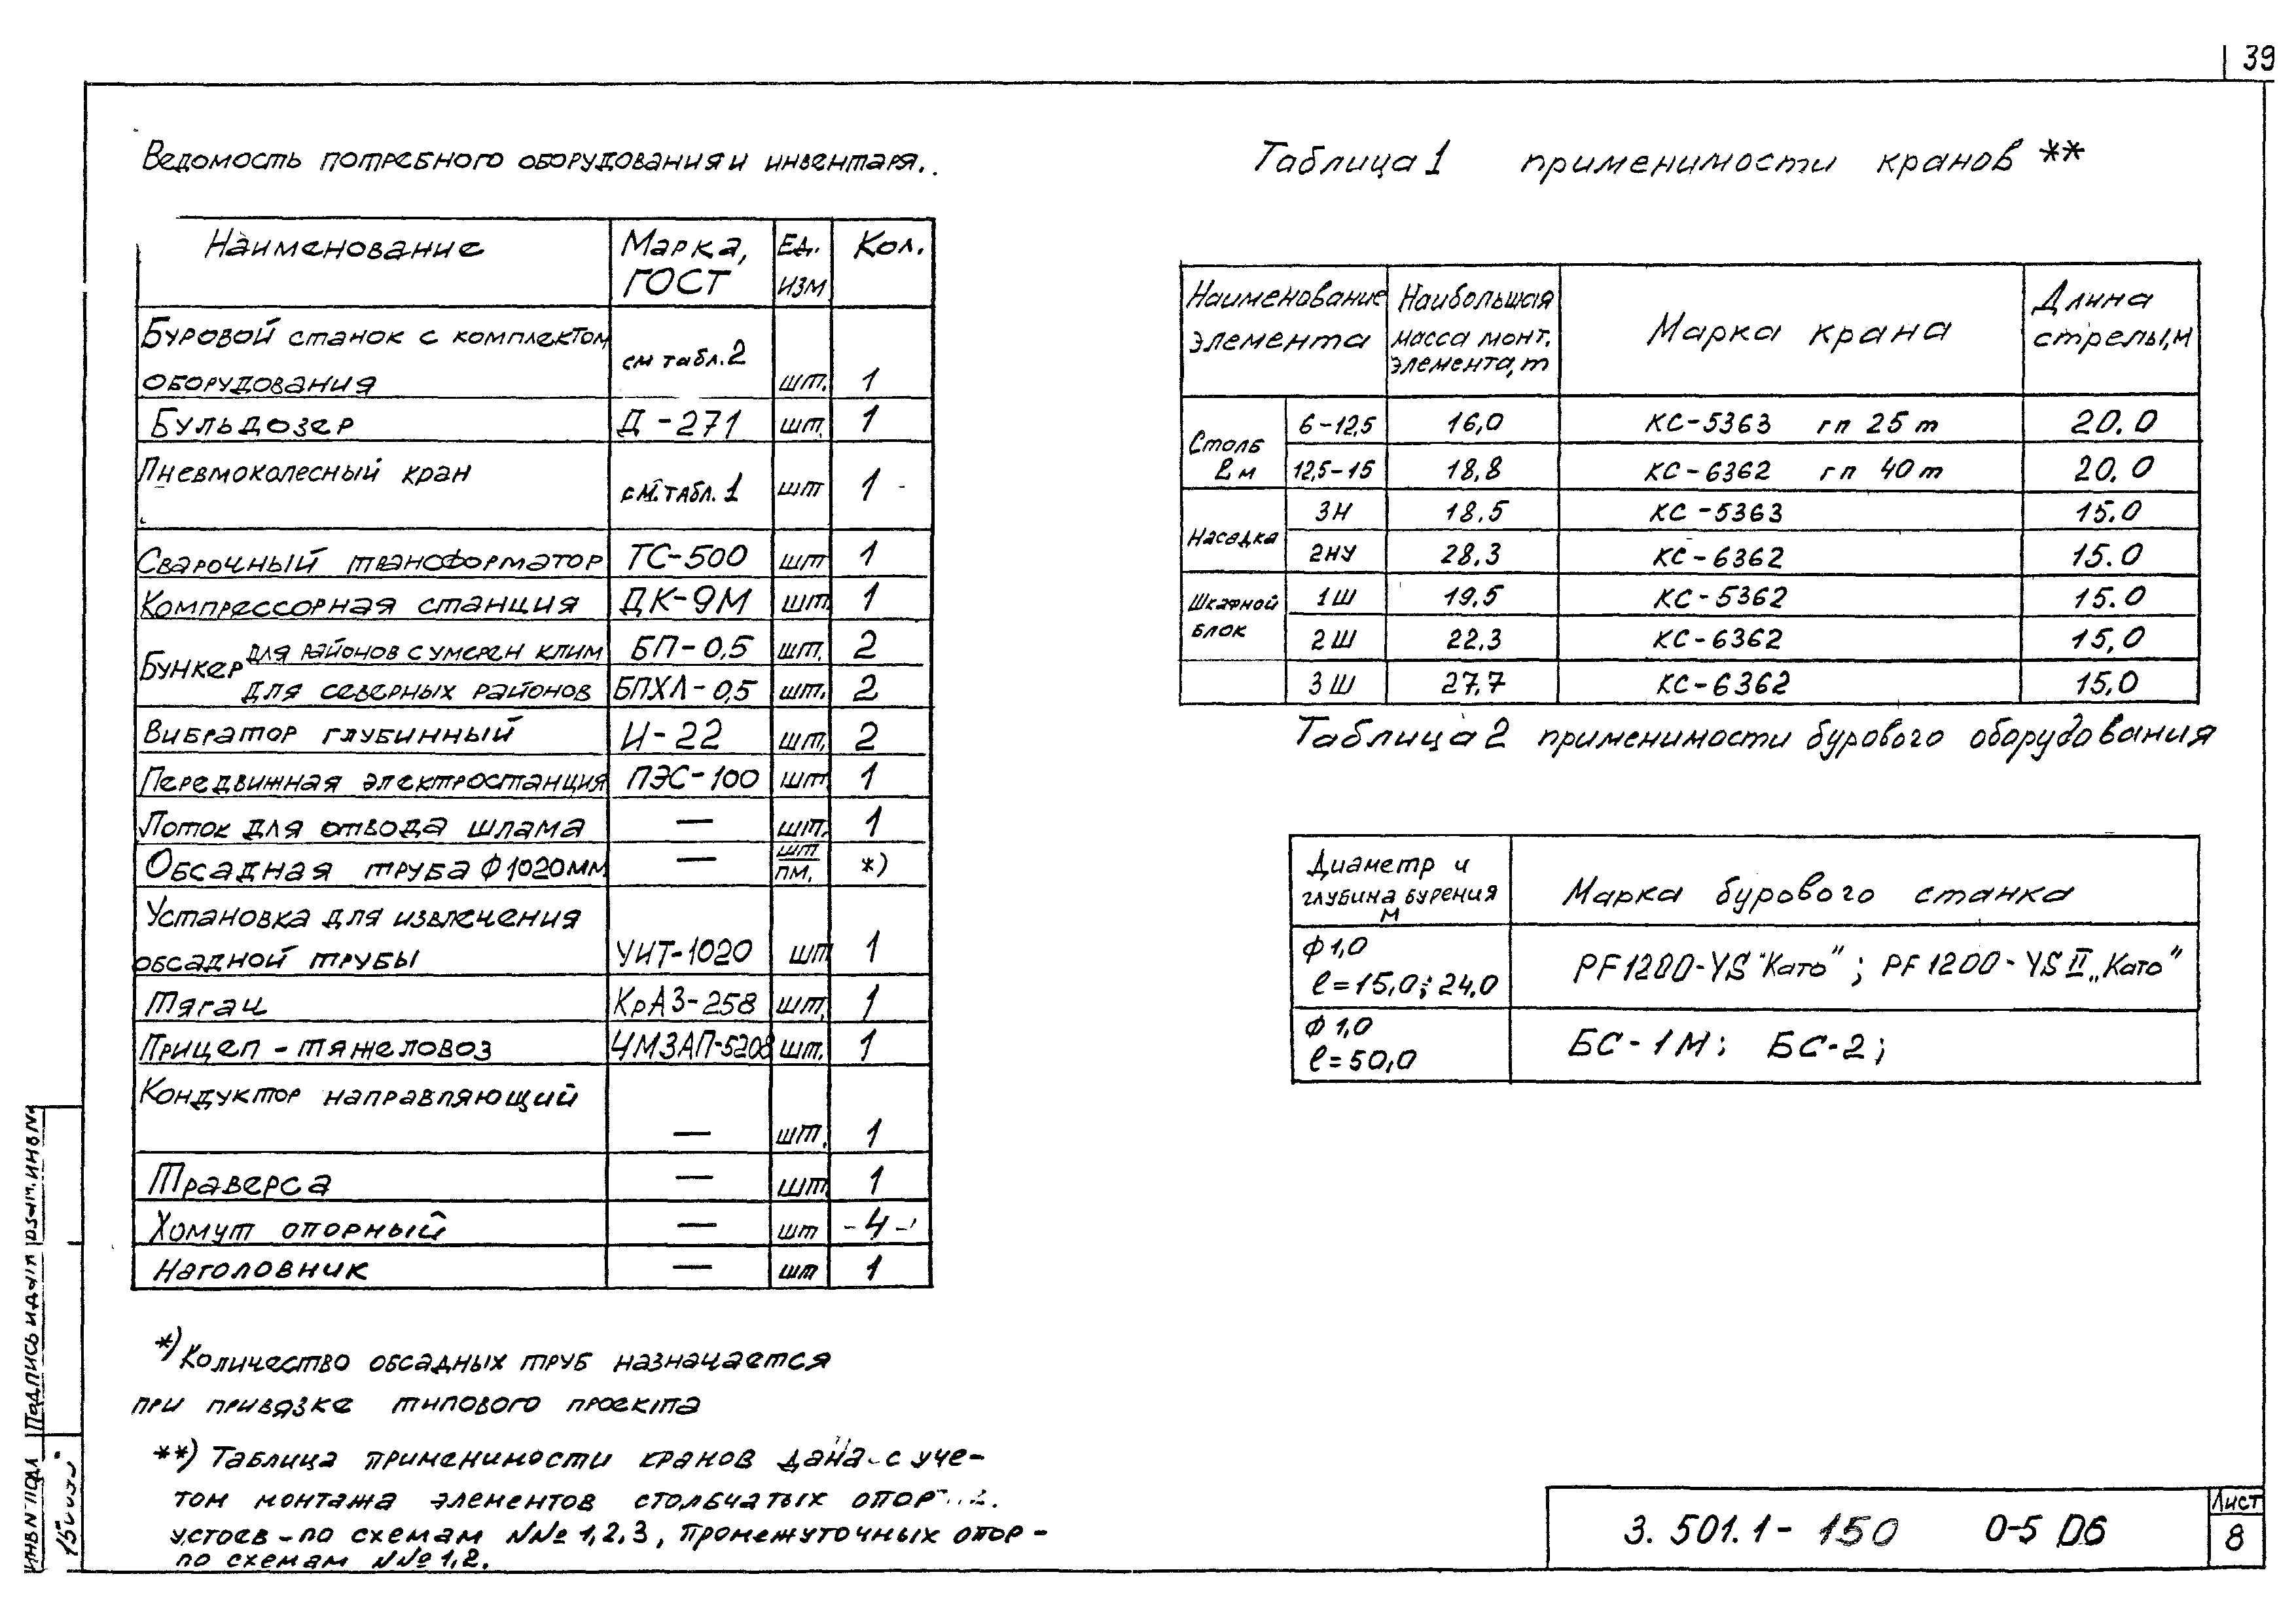 39
Ведомость потребного оборудования и инвентаря.
Наименование Марка, ГОСТ Ед. изм Кол.
Буровой станок с комплектом оборудования см табл.2 шт. 1
Бульдозер Д-271 шт. 1
Пневмоколесный кран см. табл. 1 шт 1
Сварочный трансформатор ТС-500 шт 1
Компрессорная станция ДК-9М шт. 1
Бункер для районов с умерен клим БП-0,5 шт. 2
для северных районов БПХЛ-0,5 шт. 2
Вибратор глубинный И-22 шт. 2
Передвижная электростанция ПЭС-100 шт. 1
Лоток для отвода шлама — шт. 1
Обсадная труба Ф1020мм — шт/пм. *)
Установка для извлечения обсадной трубы УИТ-1020 шт 1
Тягач КрАЗ-258 шт. 1
Прицеп-тяжеловоз ЧМЗАП-5208 шт. 1
Кондуктор направляющий — шт. 1
Траверса — шт. 1
Хомут опорный — шт -4-
Наголовник — шт 1
*) Количество обсадных труб назначается
при привязке типового проекта
**) Таблица применимости кранов дана с уче-
том монтажа элементов столбчатых опор
устоев-по схемам NN№ 1,2,3, промежуточных опор-
по схемам NN№ 1,2.
Таблица 1 применимости кранов **
Наименование элемента Наибольшая масса монт. элемента, т Марка крана Длина стрелы, м
Столб ℓ м 6-12,5 16,0 КС-5363 гп 25 т 20.0
12,5-15 18,8 КС-6362 гп 40 т 20.0
Насадка 3Н 18.5 КС-5363 15.0
2НУ 28.3 КС-6362 15.0
Шкафной блок 1Ш 19.5 КС-5362 15.0
2Ш 22.3 КС-6362 15,0
3Ш 27.7 КС-6362 15,0
Таблица 2 применимости бурового оборудования
Диаметр и глубина бурения м Марка бурового станка
Ф 1,0 ℓ=15,0; 24,0 PF1200-YS "Като"; PF 1200-YS II „Като"
Ф 1,0 ℓ=50,0 БС-1М; БС-2;
ИНВ N ПОДЛ Подпись и дата Взам. инв N
3.501.1-150 0-5 D6
Лист
8